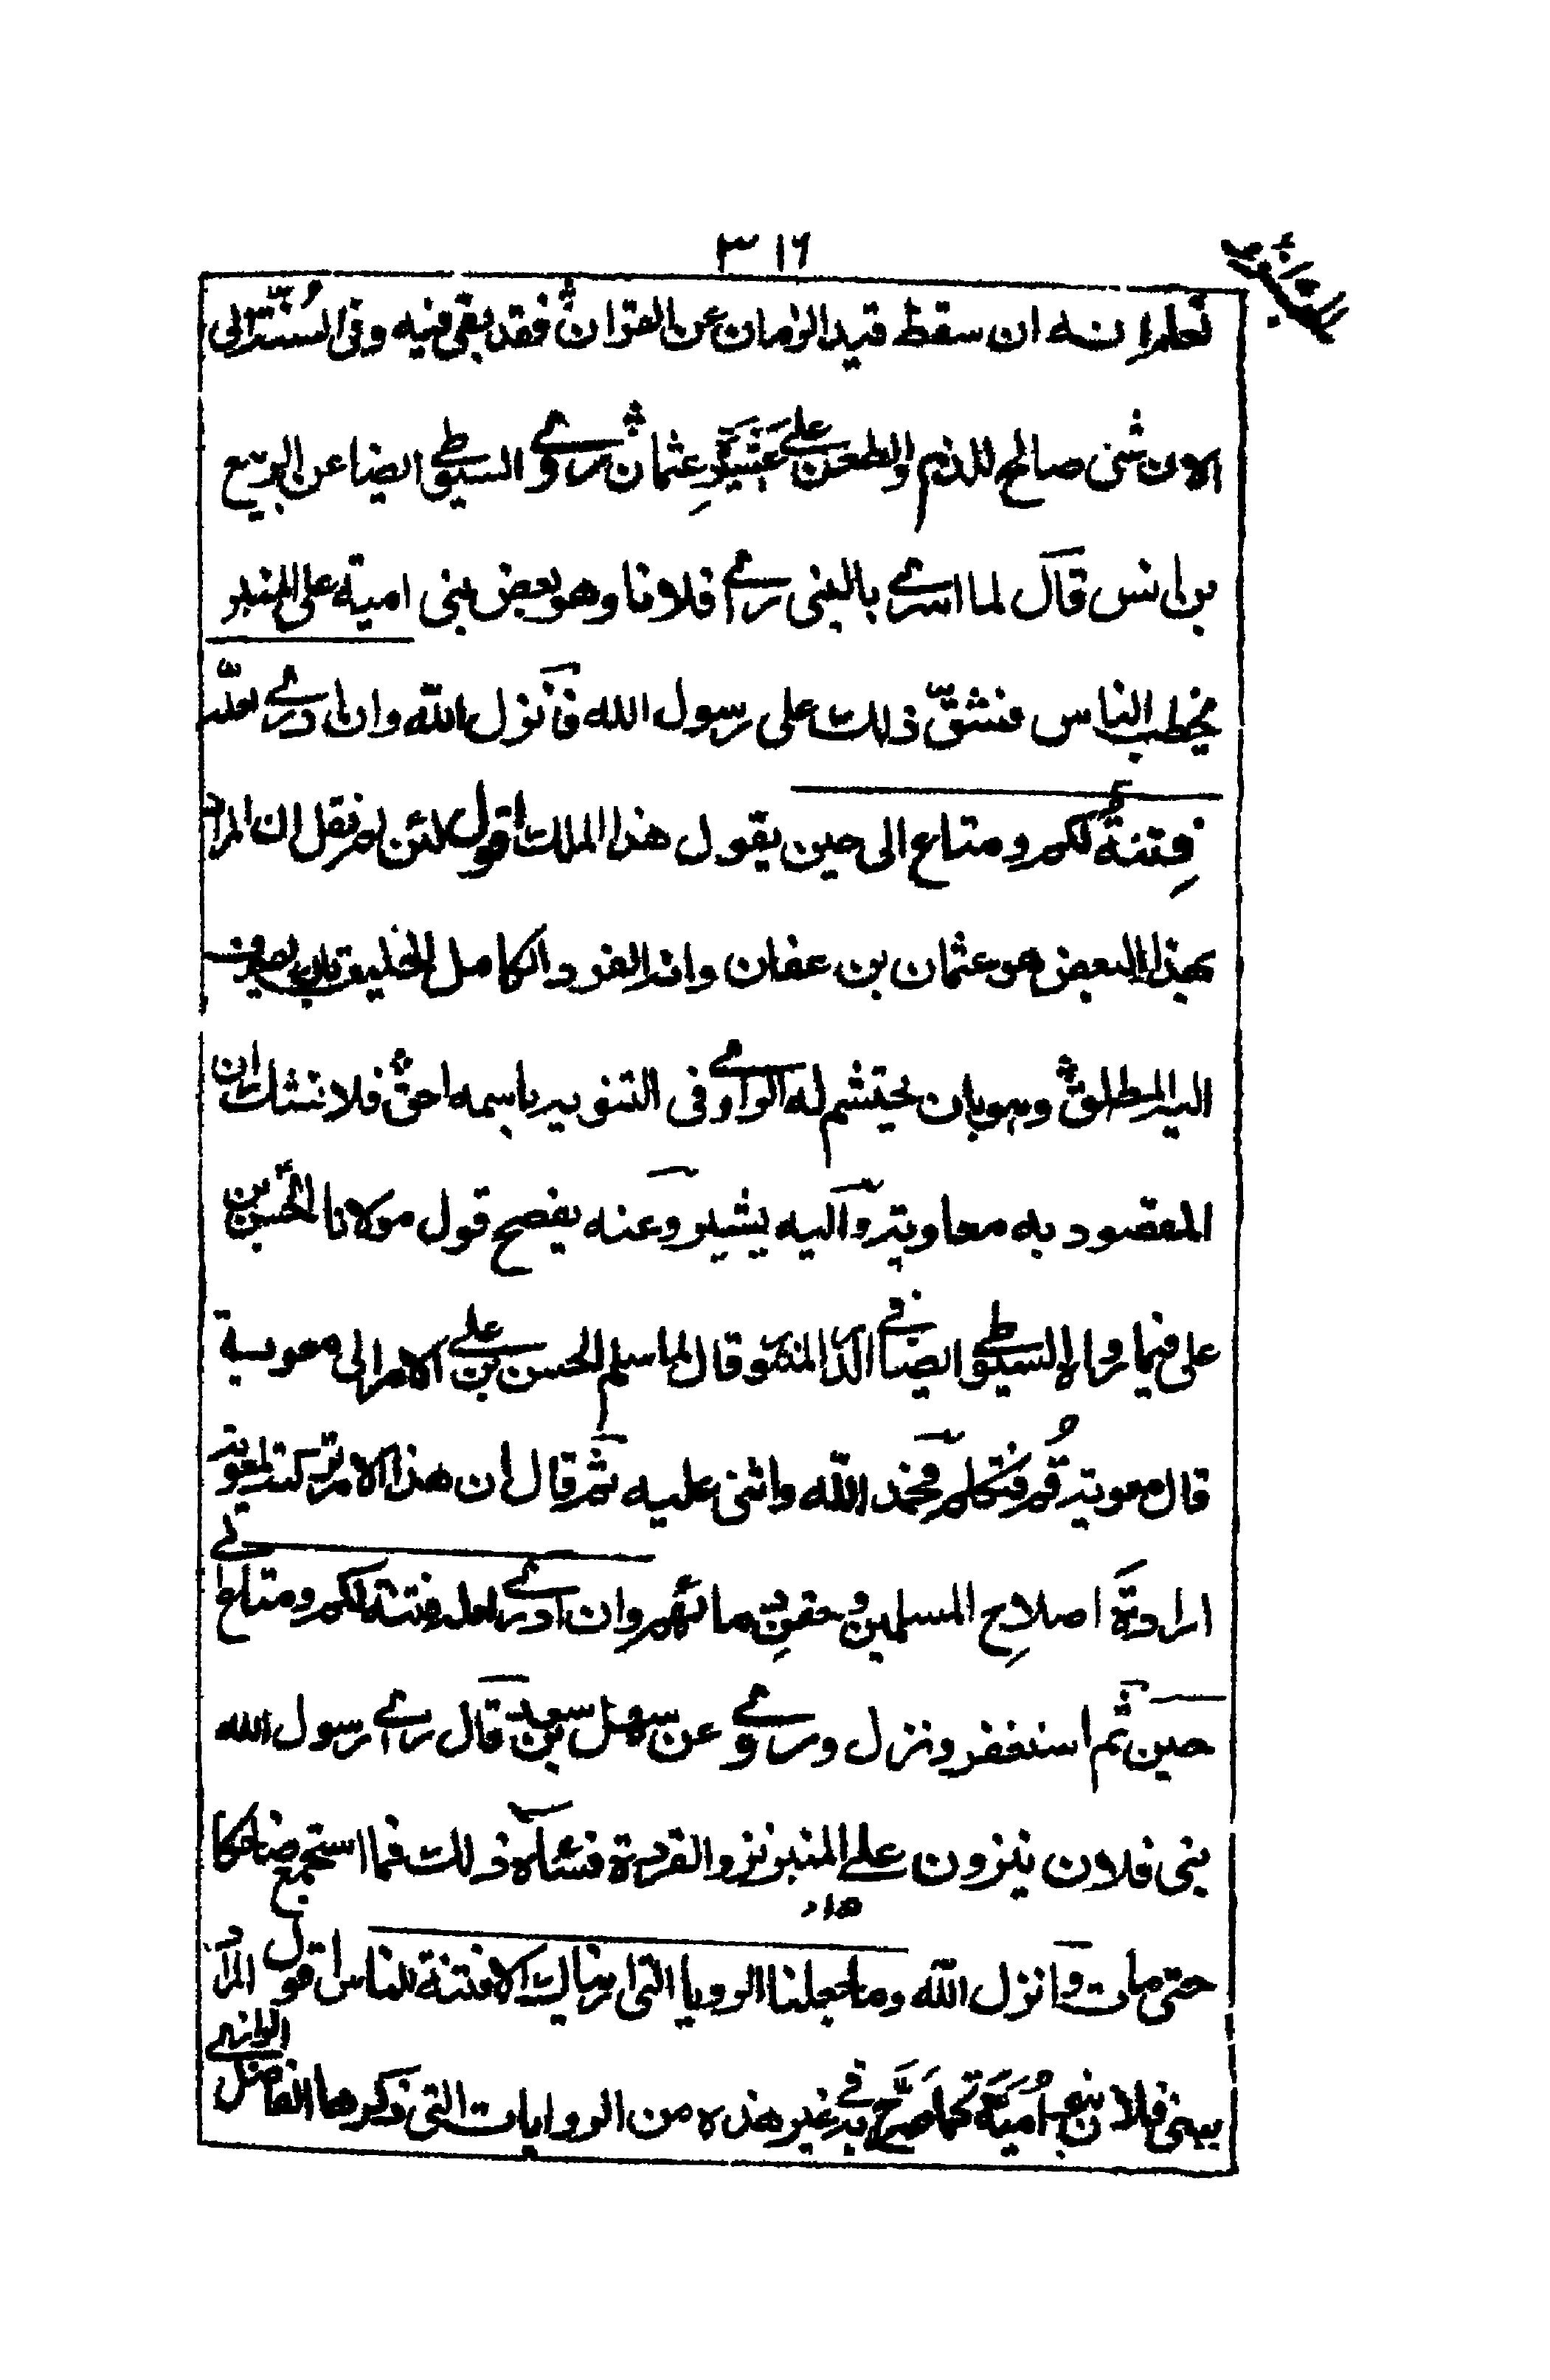 ٣١٦
تعلم انه ان سقط قيد الزمان عن القران فقد بقى فيه وفى السنة الى
الان شئ صالح للذم والطعن على عشيرة عثمان وروى السيوطى ايضا عن الربيع
بن انس قال لما اسرى بالنبى راى فلانا وهو بعض بنى امية على المنبر
يخطب الناس فشق ذلك على رسول الله فانزل الله وان ادرى لعله
فتنة لكم ومتاع الى حين يقول هذا الملك اقول لئن لم نقل ان المراد
بهذا البعض هو عثمان بن عفان وانه الفرد الكامل الخليق بان يصرف
اليه المطلق وهو بان يحتشم له الراوى فى التنويه باسمه احق فلا نشك ان
المقصود به معاوية واليه يشير وعنه يفصح قول مولانا الحسن بن
على فيما رواه السيوطى ايضا فى الدر المنثور قال لما سلم الحسن بن على الامر الى معوية
قال معوية قم فتكلم فحمد الله واثنى عليه ثم قال ان هذا الامر تركته لمعوية
ارادة اصلاح المسلمين وحقن دمائهم وان ادرى لعله فتنة لكم ومتاع الى
حين ثم استغفر ونزل وروى عن سهل بن سعد قال راى رسول الله
بنى فلان ينزون على المنبر نزو القردة فساءه ذلك فما استجمع ضاحكا
حتى مات وانزل الله وما جعلنا الرويا التى اريناك الا فتنة للناس اقول المراد
ببنى فلان بنو امية كما صرح به فى غير هذه من الروايات التى ذكرها الفاضل